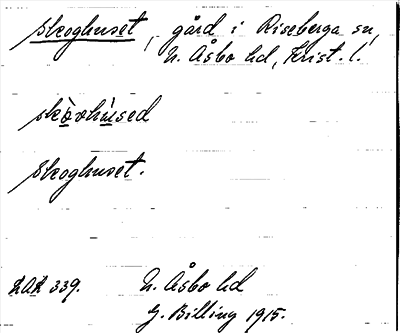 Skoghuset, gård i Riseberga sn,
N. Åsbo hd, Krist. l.
skòvhùsed
Skoghuset.
LAL 339.
N. Åsbo hd
G. Billing 1915.